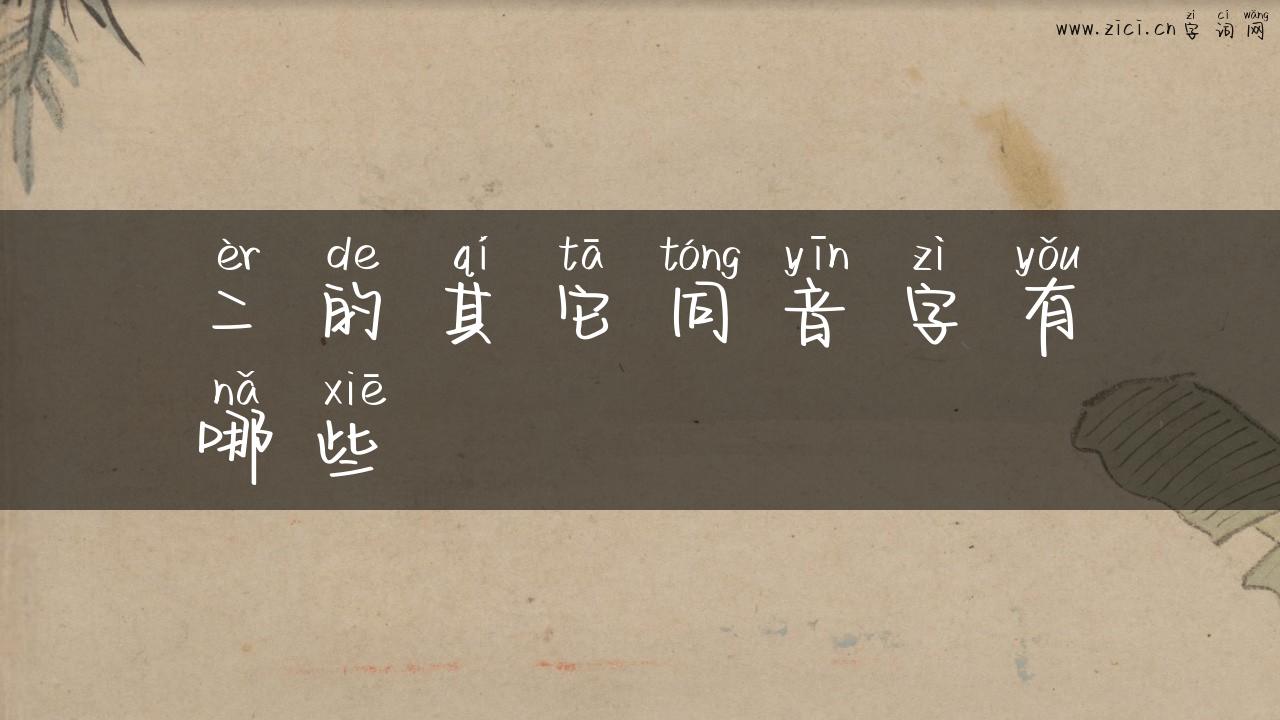 zì cí wǎng
www.zici.cn 字词网
èr de qí tā tóng yīn zì yǒu
二的其它同音字有
nǎ xiē
哪些